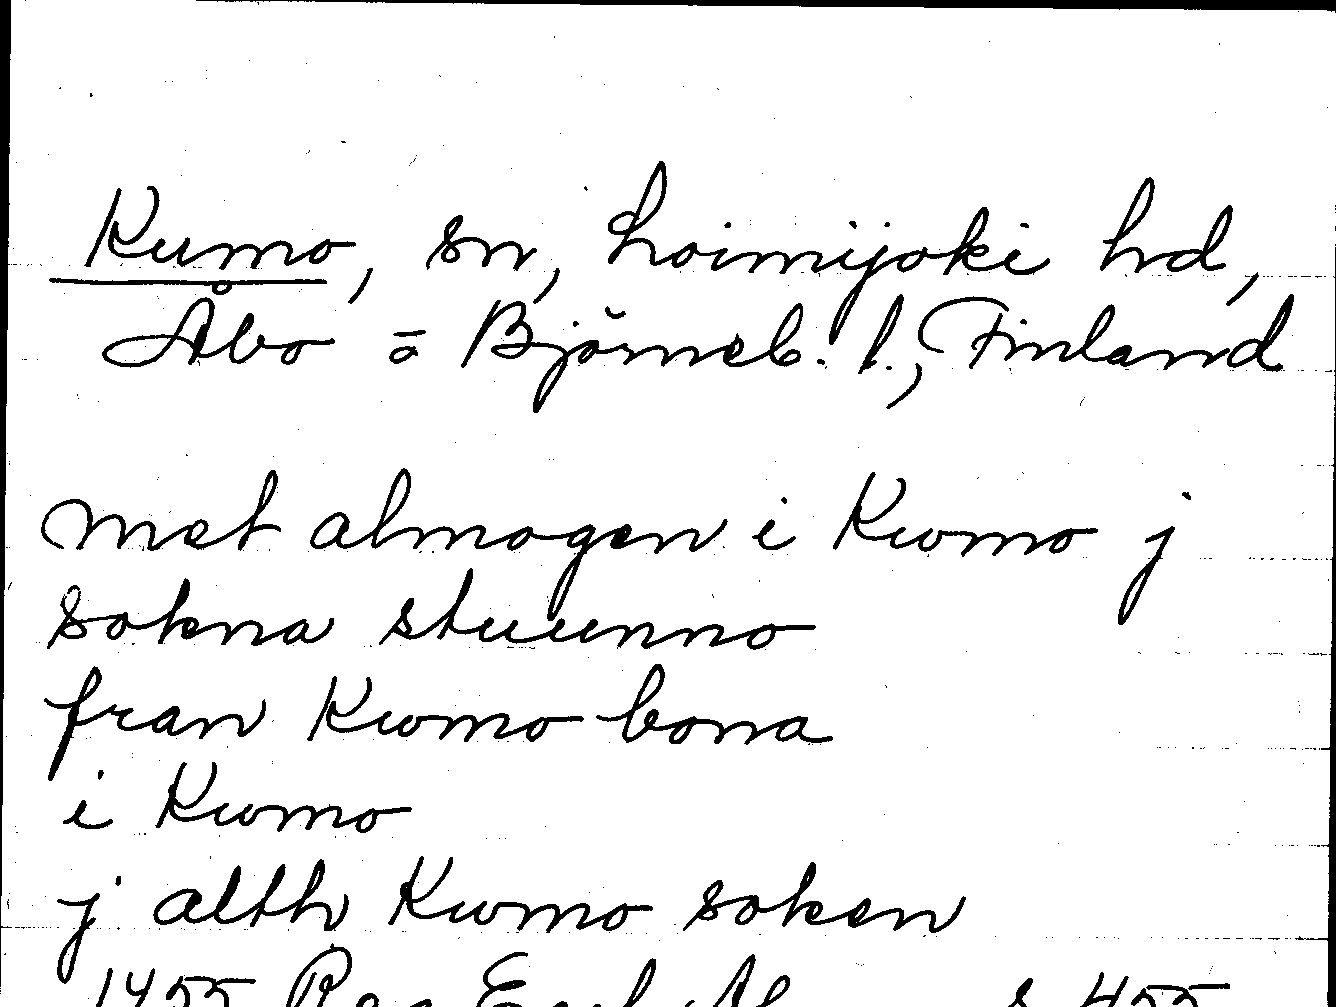 Kumo, sn, Loimijoki hd,
Åbo o Björneb. l., Finland
met almogen i Kwmo j
sokna stuunno
fran Kwmo bona
i Kwmo
j alth Kwmo soken
1455 Reg Eccl Ab s 455